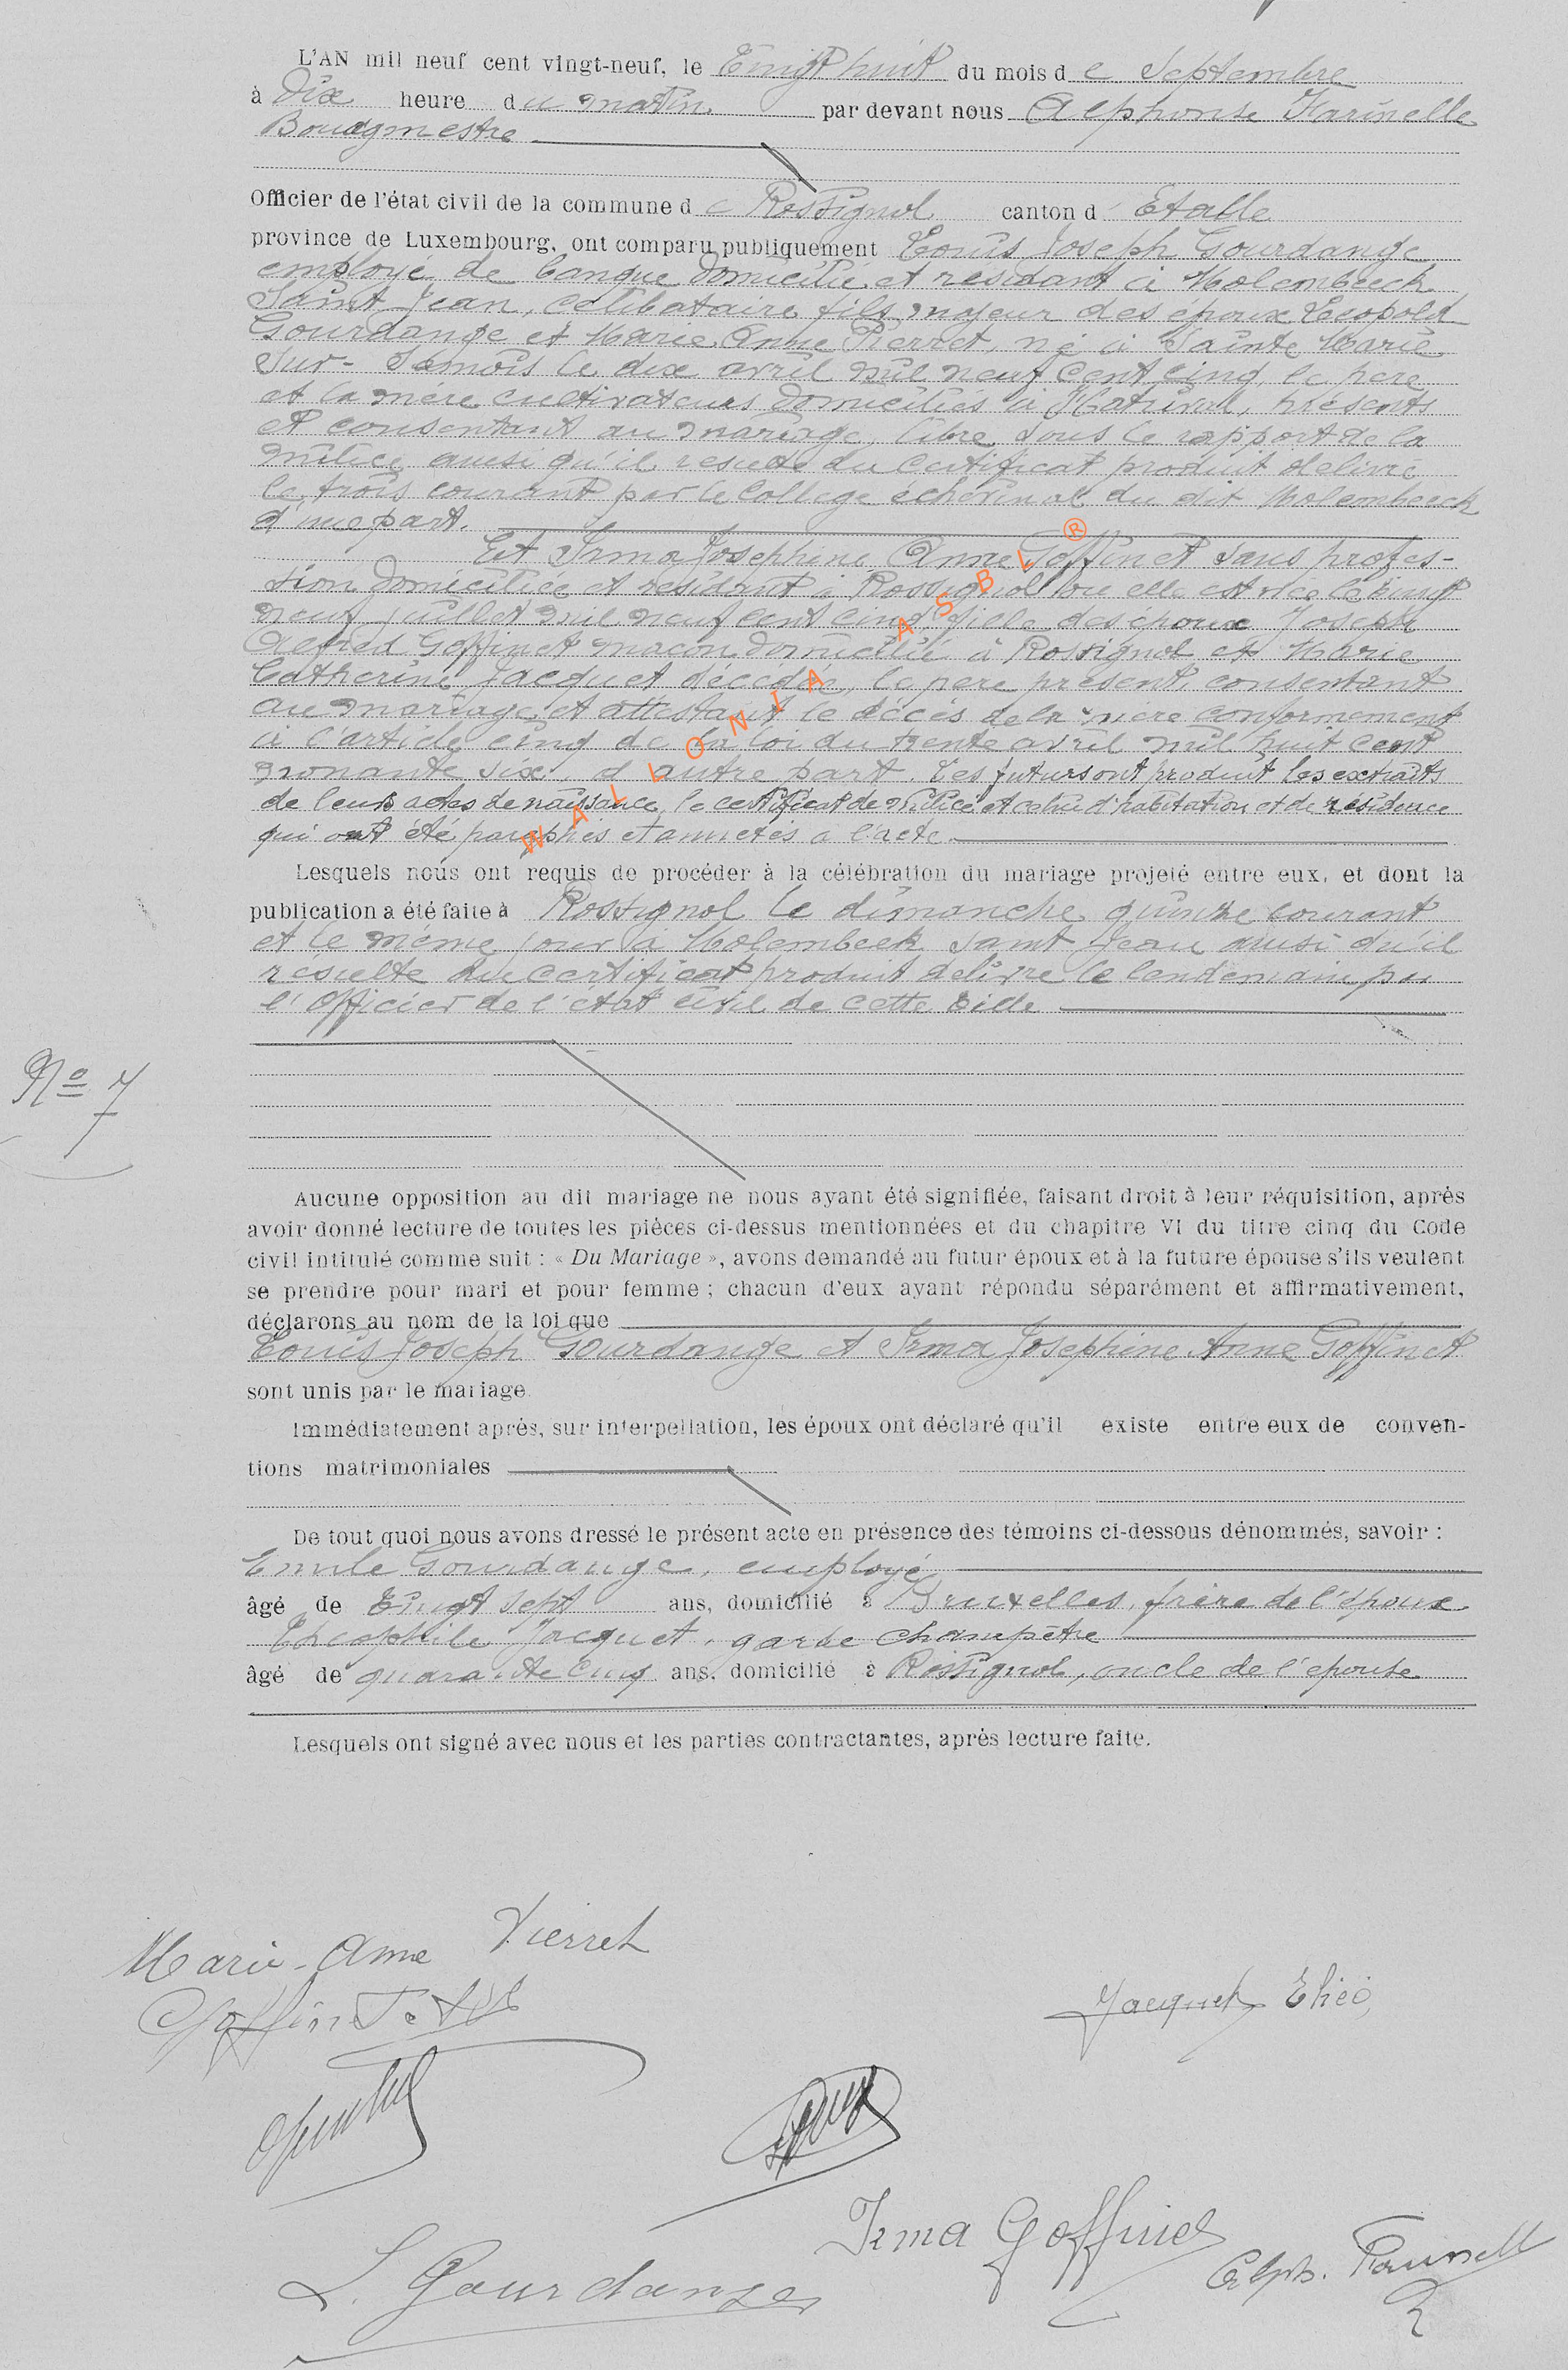 L'AN mil neuf cent vingt-neuf, le Vingt huit du mois d e Septembre
à Dix heure du matin par devant nous Alphonse Farinelle
Bourgmestre
Officier de l'état civil de la commune d e Rossignol canton d' Etalle
province de Luxembourg, ont comparu publiquement Louis Joseph Gourdange
employé de banque domicilié et résidant à Molembeeck
Saint Jean, célibataire fils majeur des époux Léopold
Gourdange et Marie Anne Pierret, né à Sainte Marie
sur-Semois le dix avril mil neuf cent cinq, le père
et la mère cultivateurs domiciliés à présents
et consentant au mariage, libre sous le rapport de la
milice ainsi qu'il résulte du certificat produit délivré
le trois courant par le Collège échevinal du dit Molembeeck
d'une part.
Et Irma Josephine Anne Goffinet sans profes-
sion domiciliée et résidant à Rossignol ou elle est née le vingt
neuf juillet mil neuf cent cinq, fille des époux Joseph
Alfred Goffinet maçon domicilié à Rossignol et Marie
Catherine Jacquet décédée, le père présent, consentant
au mariage et attestant le décès de la mère conformément
à l'article cinq de la loi du trente avril mil huit cent
nonante six, d'autre part. Les futurs ont produit les extraits
de leurs actes de naissance, le certificat de milice et celui d'habitation et de résidence
qui ont été paraphés et annexés a l'acte.
WALLONIA ASBL ®
Lesquels nous ont requis de procéder à la célébration du mariage projeté entre eux, et dont la
publication a été faite à Rossignol le dimanche quinze courant
et le même jour à Molembeek saint Jean ainsi qu'il
résulte du certificat produit délivré le lendemain par
l'Officier de l'état civil de cette Ville
No 7
Aucune opposition au dit mariage ne nous ayant été signifiée, faisant droit à leur réquisition, après
avoir donné lecture de toutes les pièces ci-dessus mentionnées et du chapitre VI du titre cinq du Code
civil intitulé comme suit : « Du Mariage », avons demandé au futur époux et à la future épouse s'ils veulent
se prendre pour mari et pour femme ; chacun d'eux ayant répondu séparément et affirmativement,
déclarons au nom de la loi que
Louis Joseph Gourdange et Irma Josephine Anne Goffinet
sont unis par le mariage.
Immédiatement après, sur interpellation, les époux ont déclaré qu'il existe entre eux de conven-
tions matrimoniales
De tout quoi nous avons dressé le présent acte en présence des témoins ci-dessous dénommés, savoir :
Emile Gourdange, employé
âgé de Vingt sept ans, domicilié à Bruxelles, frère de l'époux
Théophile Jacquet, garde champêtre
âgé de quarante cinq ans, domicilié à Rossignol, oncle de l'epouse
Lesquels ont signé avec nous et les parties contractantes, après lecture faite.
Marie-Anne Pierret
Goffinet
Jacquet Théo,
Irma Goffinet
L. Gourdange
Alph. Farinelle